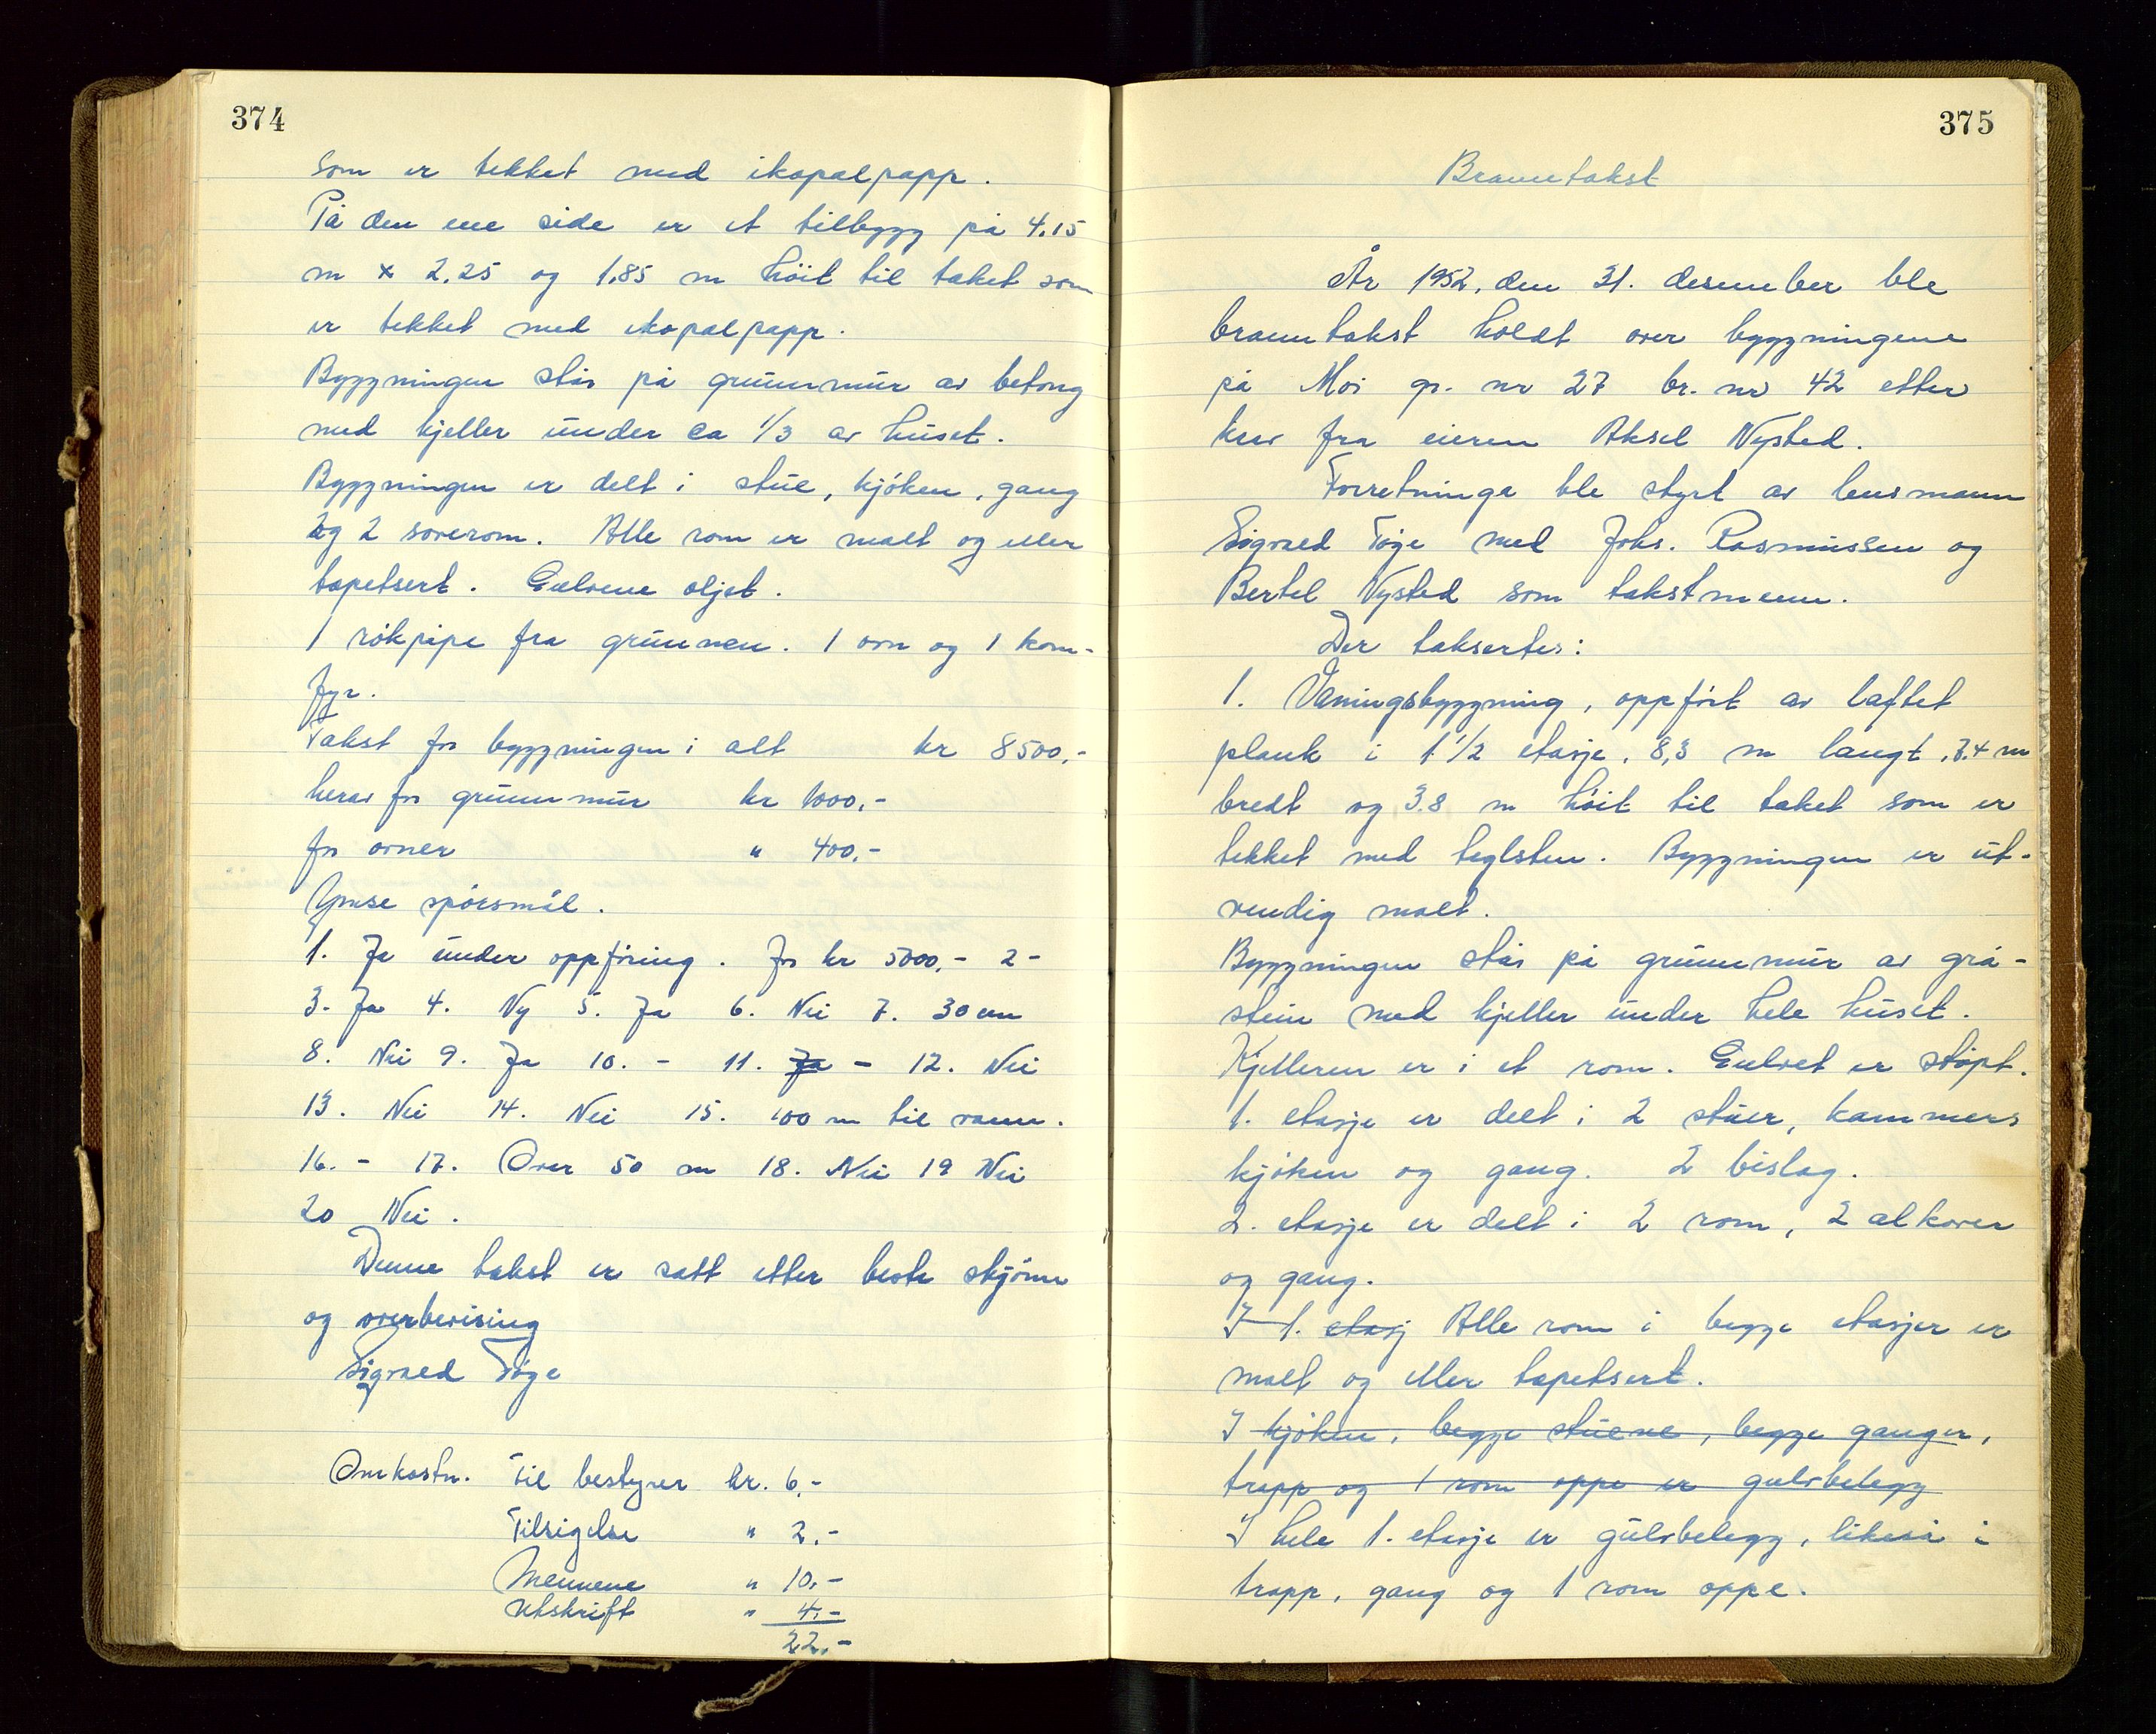 374
som er tekket med ikopalpapp.
På den ene side er et tilbygg på 4.15
m x 2.25 og 1.85 m höit til taket som
er tekket med ikopalpapp.
Byggningen står på grunnmur av betong
med kjeller under ca 1/3 av huset.
Byggningen er delt i stue, kjöken, gang
og 2 soverom. Alle rom er malt og eller
tapetsert. Gulvene oljet.
1 rökpipe fra grunnen. 1 ovn og 1 kom-
fyr.
Takst for byggningen i alt kr 8500,-
herav for grunnmur kr 1000,-
for ovner " 400,-
Ymse spörsmål.
1. Ja under oppföring. for kr 5000,- 2-
3. Ja 4. Ny 5. Ja 6. Nei 7. 30 cm
8. Nei 9. Ja 10. - 11. Ja - 12. Nei
13. Nei 14. Nei 15. 100 m til vann.
16. - 17. Over 50 m 18. Nei 19 Nei
20 Nei.
Denne takst er satt etter beste skjönn
og overbevising
Sigvald Töge
Omkostn. Til bestyrer kr. 6,-
Tilsigelse " 2,-
Mennene " 10,-
Utskrift " 4,-
22,-
375
Branntakst
År 1952, den 31. desember ble
branntakst holdt over byggningene
på Moi gr. nr 27 br. nr 42 etter
krav fra eieren Aksel Nysted.
Forretninga ble styrt av lensmann
Sigvald Töge med Johs. Rasmussen og
Bertel Nysted som takstmenn.
Der taksertes:
1. Våningsbyggning, oppfört av laftet
plank i 1 1/2 etasje, 8,3 m langt, 7.4 m
bredt og 3.8 m höit til taket som er
tekket med teglsten. Byggningen er ut-
vendig malt.
Byggningen står på grunnmur av grå-
stein med kjeller under hele huset.
Kjelleren er i et rom. Gulvet er støpt.
1. etasje er delt i 2 stuer, kammers
kjöken og gang. 2 bislag.
2. etasje er delt i 2 rom, 2 alkover
og gang.
I 1. etasj Alle rom i begge etasjer er
malt og eller tapetsert.
I kjöken, begge stuene, begge ganger,
trapp og 1 rom oppe er gulvbelegg
I hele 1. etasje er gulvbelegg, likeså i
trapp, gang og 1 rom oppe.